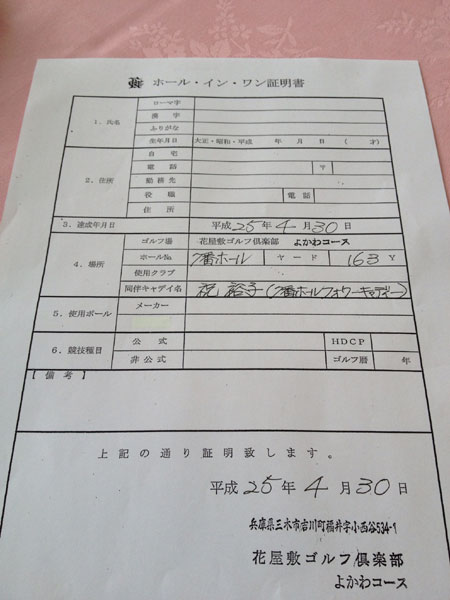 ホール・イン・ワン証明書
1. 氏名
ローマ字
漢字
ふりがな
生年月日 大正・昭和・平成 年 月 日 ( 才)
2. 住所
自宅
電話 〒
勤務先
役職 電話
住所
3. 達成年月日 平成25年4月30日
4. 場所
ゴルフ場 花屋敷ゴルフ倶楽部 よかわコース
ホールNo. 7番ホール ヤード 163 Y
使用クラブ
同伴キャディ名 祝 裕子(7番ホールフォワーキャディー)
5. 使用ボール
メーカー
6. 競技種目
公式 HDCP
非公式 ゴルフ暦 年
【備考】
上記の通り証明致します。
平成25年4月30日
兵庫県三木市吉川町福井字小西谷534-1
花屋敷ゴルフ倶楽部
よかわコース